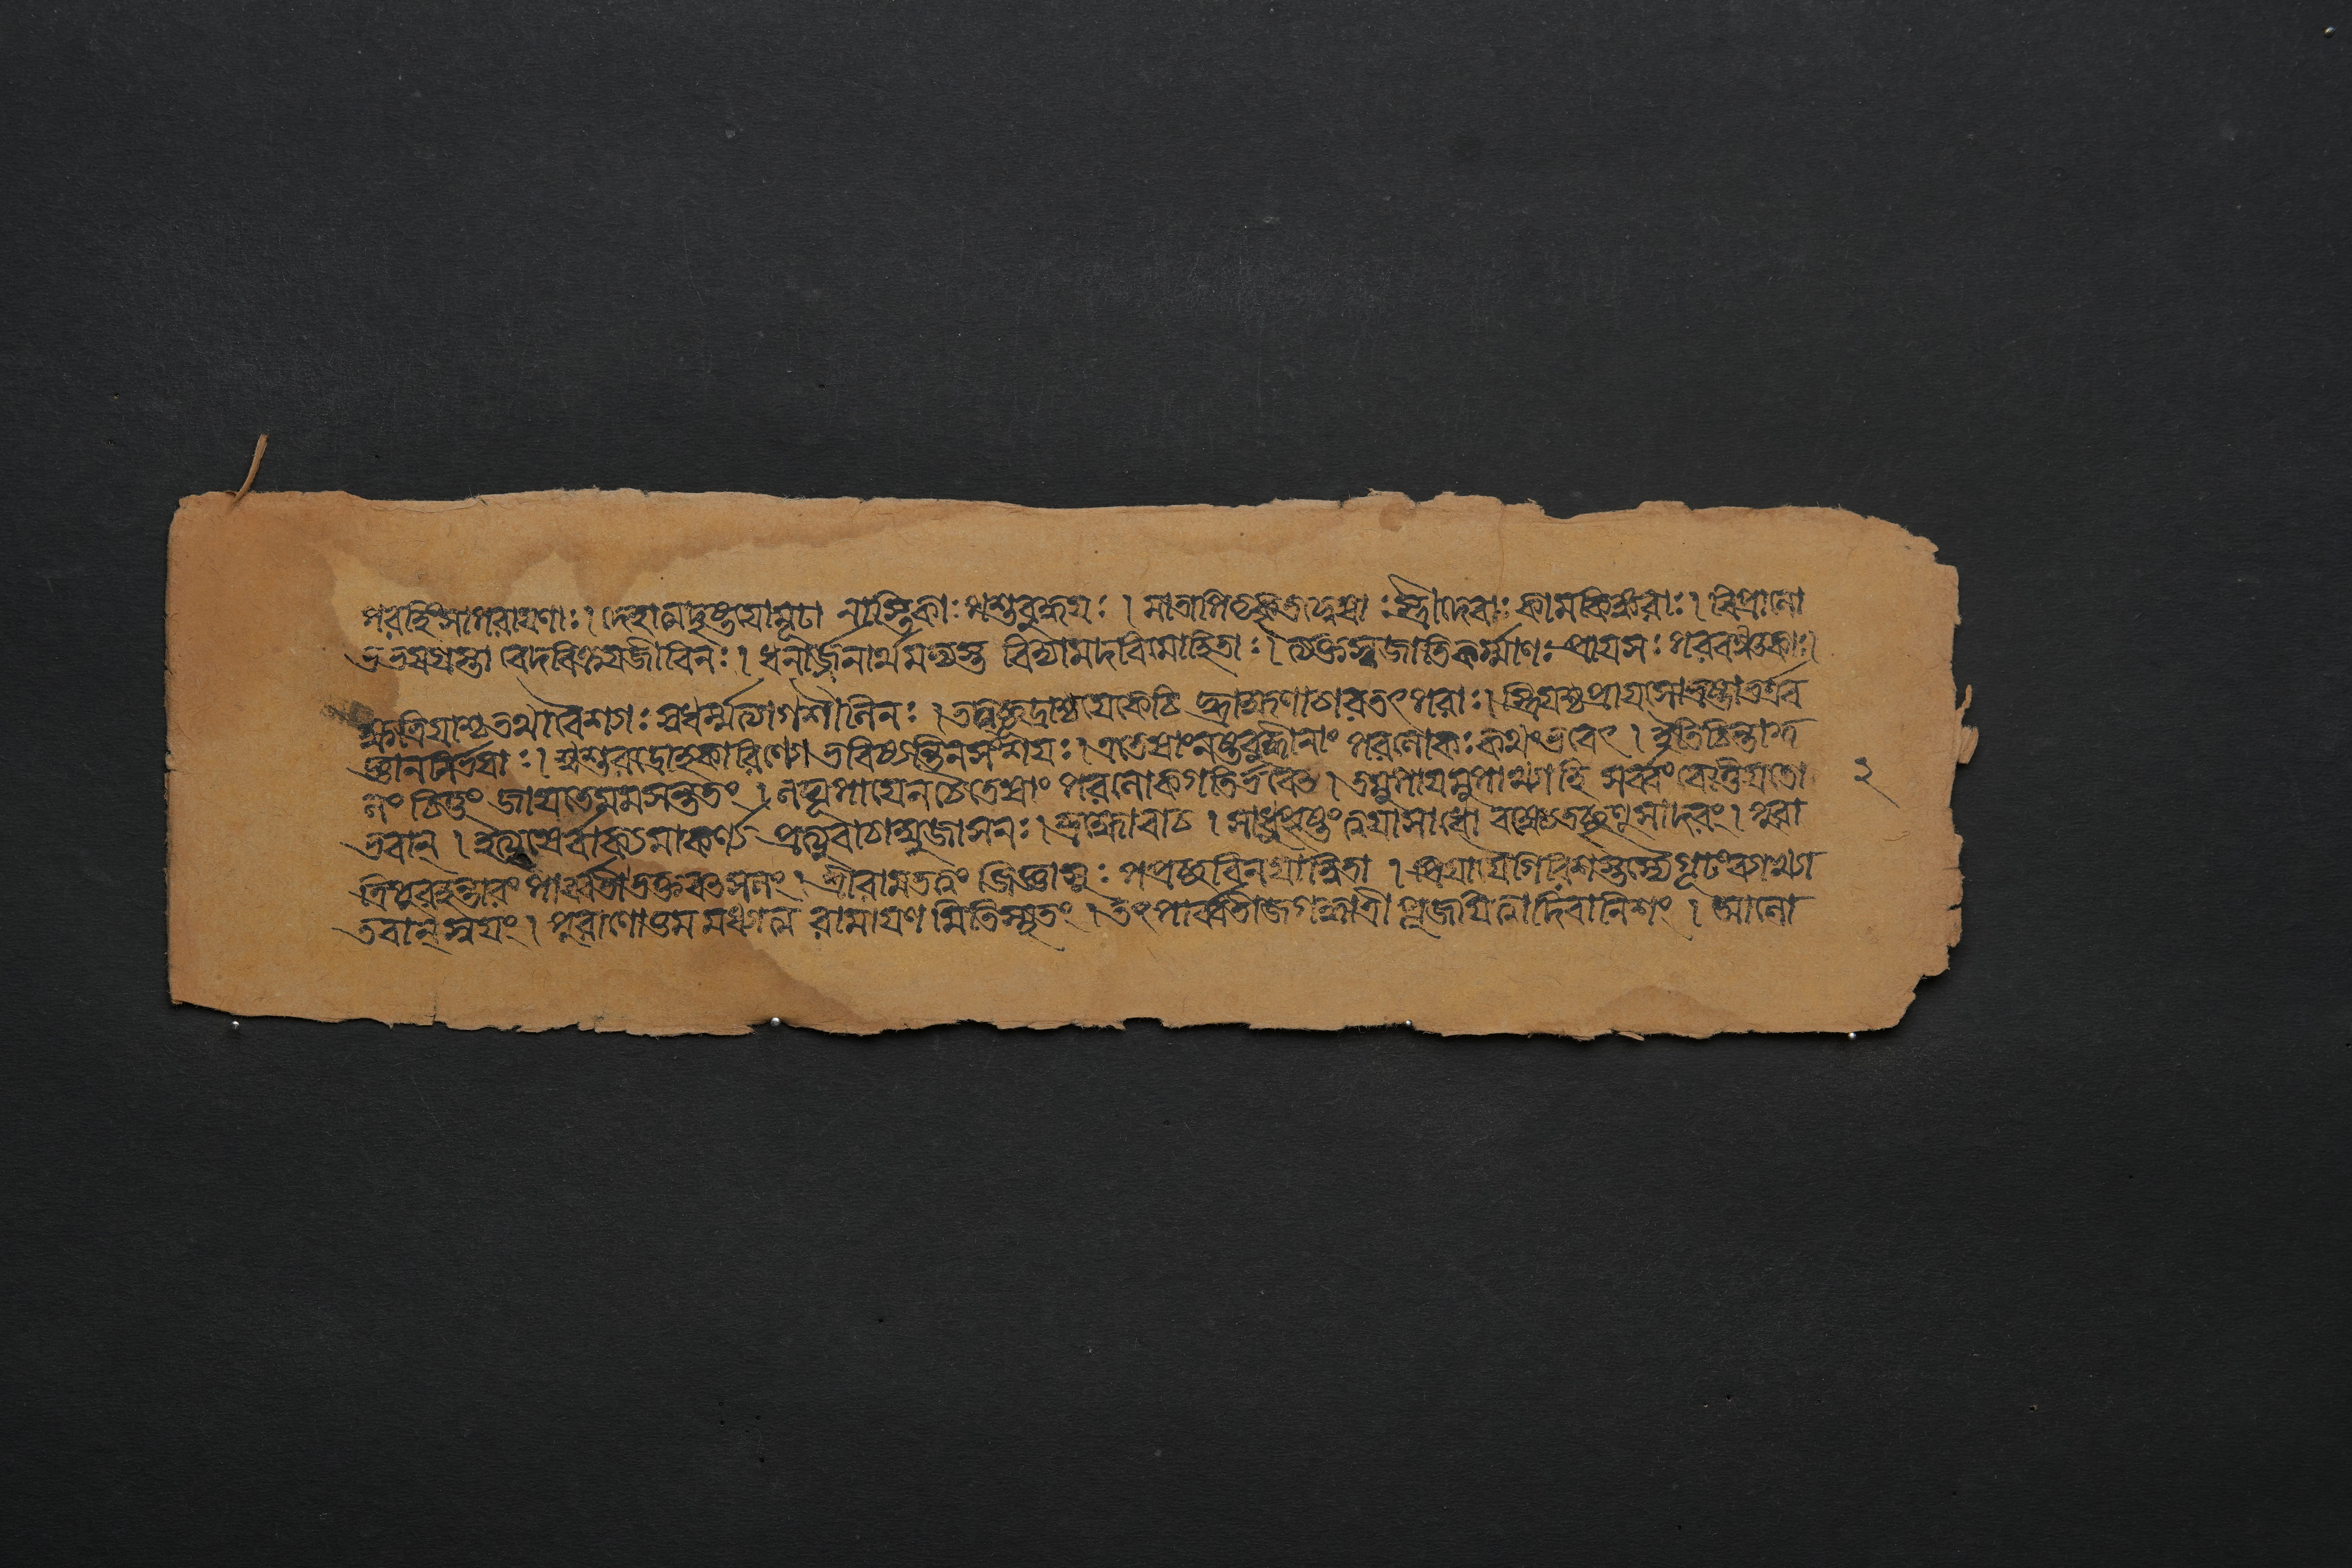 পরহিংসাপরায়ণাঃ। দেহাত্মদৃষ্টয়োমূঢা নাস্তিকাঃ পশুবুদ্ধয়ঃ । মাতাপিতৃকৃতদ্বেষাঃ স্ত্রীদেবাঃ কামকিঙ্করাঃ। বিপ্রালো
ভগ্রহগ্রস্তা বেদবিক্রয়জীবিনঃ । ধনার্জ্জনার্থমভ্যস্ত বিদ্যামদবিমোহিতাঃ । ত্যক্তস্বজাতিকর্ম্মাণঃ প্রায়সঃ পরবঞ্চকাঃ।
ক্ষত্রিয়াশ্চ তথাবৈশ্যাঃ স্বধর্ম্মত্যাগশীলিনঃ । তদ্বচ্ছূদ্রাশ্চয়েকেচি দ্ব্রাহ্মণাচারতৎপরাঃ। স্ত্রিয়শ্চপ্রায়সোভ্রষ্টাভর্ত্রব
জ্ঞাননির্ভয়াঃ । শ্বশুরদ্রোহকারিণ্যো ভবিষ্যন্তিনসংশয়ঃ । এতেষাংনষ্টবুদ্ধীনাং পরলোকঃ কথংভবেৎ । ইতিচিন্তাকু
লং চিত্তং জায়তেমমসন্ততং । লঘূপায়েনচৈতেষাং পরলোকগতির্ভবেৎ । তমুপায়মুপাখ্যাহি সর্ব্বংবেত্তিয়তো
ভবান্ । ইত্যৃষের্বাক্যমাকর্ণ্য প্রত্যুবাচাম্বুজাসনঃ । ব্রহ্মোবাচ । সাধুপৃষ্টং ত্বয়াসাধো বক্ষ্যেতচ্ছৃণুসাদরং । পুরা
ত্রিপুরহন্তারং পার্ব্বতীভক্তবৎসলং । শ্রীরামতত্ত্বং জিজ্ঞাসুঃ পপ্রচ্ছবিনয়ান্বিতা । প্রিয়ায়ৈগিরিশস্তস্যৈগূঢংব্যাখ্যা
তবান্ স্বয়ং । পুরাণোত্তমমধ্যাত্ম রামায়ণ মিতিস্মৃতং । তৎপার্ব্বতীজগদ্ধাত্রী পূজয়িত্বাদিবানিশং । আলো
২